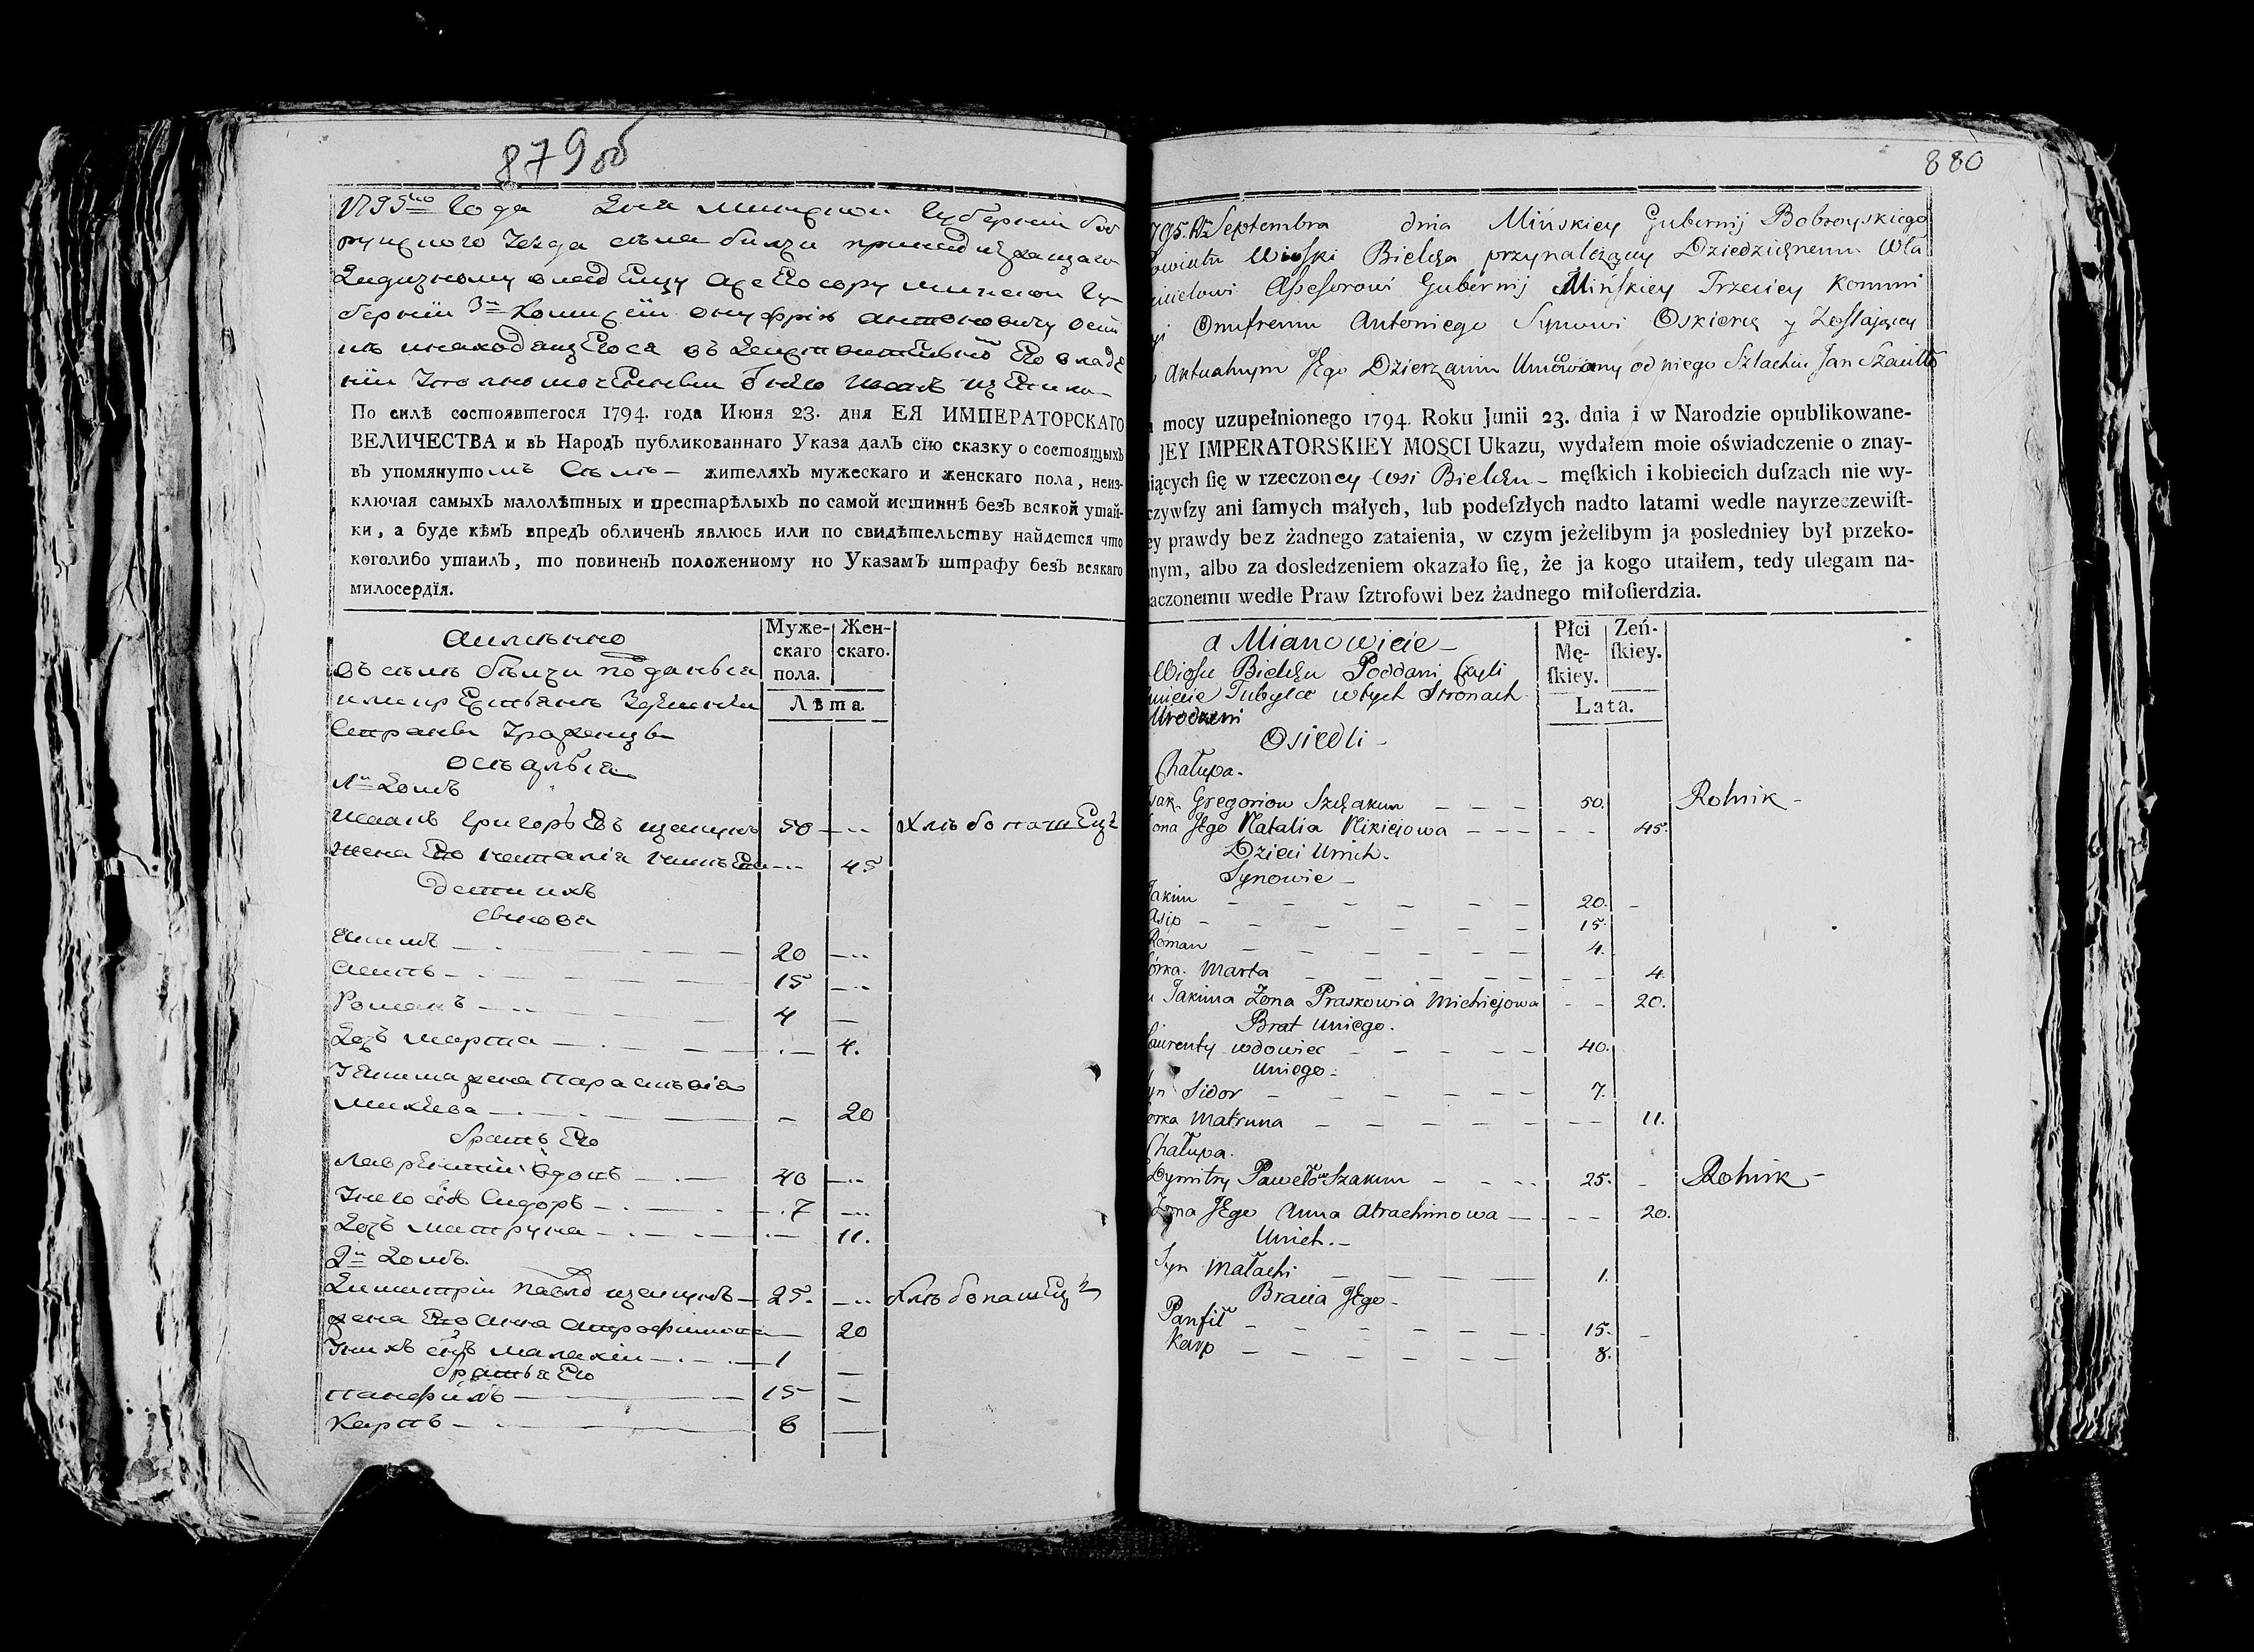 879 об
1795го Года Дня минской Губерній боб
руйского Уезда села бѣлчи принадлежащаго
дидизному владѣлцу асесору минской Гу-
берніи 3й Комисіи онуфрію антоновичу оскѣ
По силѣ состоявшегося 1794. года Июня 23. дня ЕЯ ИМПЕРАТОРСКАГО
ВЕЛИЧЕСТВА и въ Народъ публикованнаго Указа далъ сїю сказку о состоящихъ
въ упомянутомъ Сѣлѣ — жителяхъ мужескаго и женскаго пола, неиз-
ключая самыхъ малолѣтныхъ и престарѣлыхъ по самой истиннѣ безъ всякой утай-
ки, а буде кѣмъ впредъ обличенъ явлюсь или по свидѣтельству найдется что
коголибо утаилъ, то повиненъ положенному по Указамъ штрафу безъ всякаго
милосердїя.
Муже- Жен-
скаго скаго.
пола.
Лѣта.
аимѣнно
въ сѣлѣ бѣлчи подданыя
Страны Урожэнцы
осѣдлыя
1й Домъ
Исаакъ григорьевъ щакунъ 50 — Хлѣбопашецъ
жена Его наталія — 45
дети ихъ
сынова
Екимъ — 20 —
асипъ — 15 —
Романъ — 4 —
Дочъ марта — 4.
У Екима жена Парасковія
михѣева — — 20
братъ Его
Лаврентій вдовъ — 40 —
У него сынъ Сидоръ — 7 —
Дочъ матруна — 11.
2й Домъ.
Димитрій павлов щакунъ — 25. — Хлѣбопашецъ
жена Его анна — 20
У нихъ сынъ малахіи — 1 —
братья Его
панфилъ — 15 —
Карпъ — 8 —
880
795. Septembra dnia Mińskiey Gubernij Bobroyskiego
owiatu Wioski Bielcza przynależący Dziedzicznemu Wła
cicielowi Assessorowi Gubernij Mińskiey Trzeciey Kommi
yi Onufremu Antoniego Synowi Oskierą y Zostaiącey
Aktualnym JEgo Dzierżaniu Umocowany od niego Szlachcic Jan Szawiłło
mocy uzupełnionego 1794. Roku Junii 23. dnia i w Narodzie opublikowane-
JEY IMPERATORSKIEY MOSCI Ukazu, wydałem moie oświadczenie o znay-
iących ſię w rzeczoney wsi Bielczu — męſkich i kobiecich duſzach nie wy-
czywſzy ani ſamych małych, lub podeſzłych nadto latami wedle nayrzeczewiſt-
ey prawdy bez żadnego zataienia, w czym jeżelibym ja posledniey był przeko-
nym, albo za dosledzeniem okazało ſię, że ja kogo utaiłem, tedy ulegam na-
aczonemu wedle Praw ſztrofowi bez żadnego miłoſierdzia.
Płci Zeń-
Mę- ſkiey.
ſkiey.
Lata.
a Mianowicie —
Wiosce Bielczu Poddani Czyli
Tubylce w tych Stronach
Urodzeni
Osiedli —
Chałupa.
sak Gregoriow Szczakun — — — 50. Rolnik —
ona JEgo Natalia Nikiejowa — — — 45.
Dzieci Unich.
Synowie —
Jakim — — — 20. —
asip — — — 15.
Roman — — — 4.
órka Marta — — — 4.
u Jakima Zona Praskowia Michiejowa — — 20.
Brat Uniego.
aurenty wdowiec — — — 40.
Uniego.
yn Sidor — — — 7.
orka Matruna — — — 11.
Chałupa.
Dymitry Pawełow Szakun — — — 25. — Rolnik —
Zona JEgo Anna Atrachimowa — — — 20.
Unich. —
Syn Małachi — — — 1.
Bracia JEgo —
Panfił — — — 15. —
Karp — — — 8.